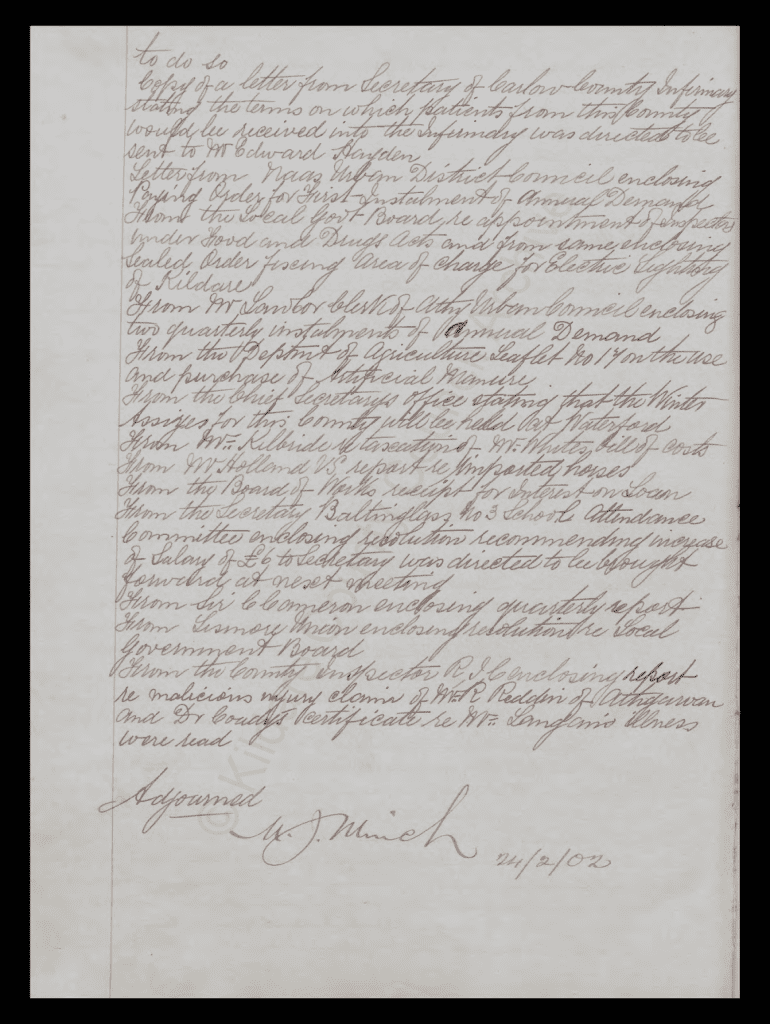 to do so
Copy of a letter from Secretary of Carlow County Infirmary
stating the terms on which patients from this County
would be received into the Infirmary was directed to be
sent to Mr Edward Hayden
Letter from Naas Urban District Council enclosing
Paying Order for First Instalment of Annual Demand
From the Local Govt Board re appointment of inspectors
under Food and Drugs Acts and from same, enclosing
Sealed Order fixing Area of charge for Electric Lighting
of Kildare
From Mr Lawlor Clerk of Athy Urban Council enclosing
two quarterly instalments of Annual Demand
From the Depmt of Agriculture Leaflet No 17 on the use
and purchase of Artificial Manure
From the Chief Secretarys office stating that the Winter
Assizes for this County will be held at Waterford
From Mr Kilbride re taxation of Mr Whites bill of costs
From Mr Holland V.S. report re imported horses
From the Board of Works receipt for Interest on Loan
From the Secretary Baltinglass No 3 School Attendance
Committee enclosing resolution recommending increase
of Salary of £6 to Secretary was directed to be brought
forward at next meeting
From Sir C Cameron enclosing quarterly report
From Lismore Union enclosing resolution re Local
Government Board
From the County Inspector R.I.C enclosing report
re malicious injury claim of Mr R Reddin of Athgarvan
and Dr Coady's certificate re Mr Langan's illness
were read
Adjourned
M. J. Minch
24/2/02